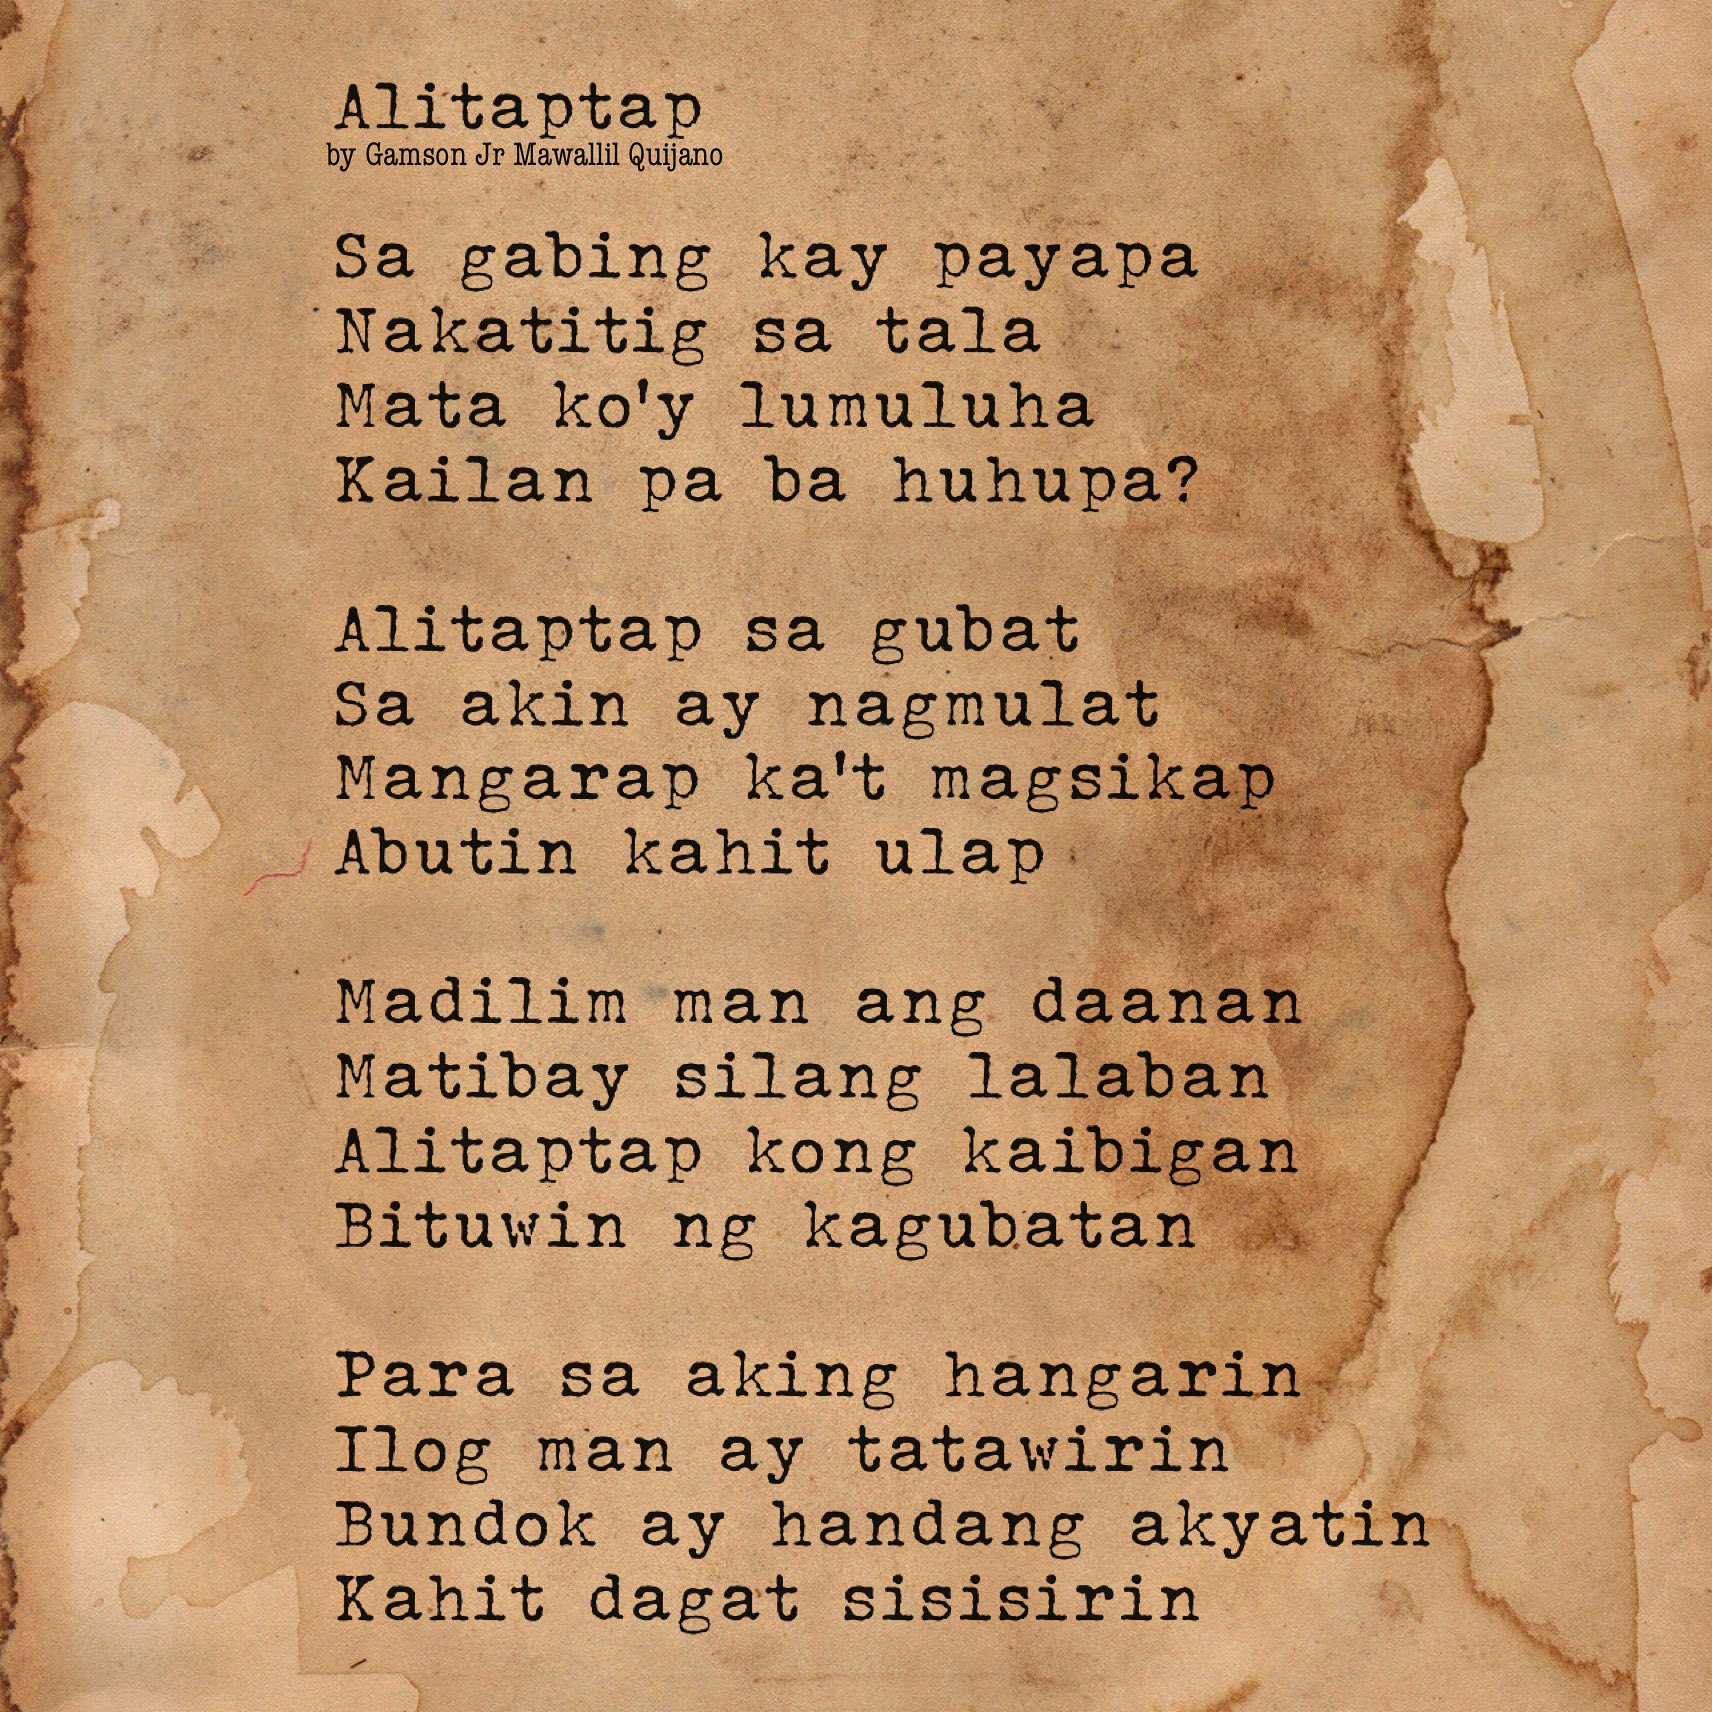 Alitaptap
by Gamson Jr Mawallil Quijano
Sa gabing kay payapa
Nakatitig sa tala
Mata ko'y lumuluha
Kailan pa ba huhupa?
Alitaptap sa gubat
Sa akin ay nagmulat
Mangarap ka't magsikap
Abutin kahit ulap
Madilim man ang daanan
Matibay silang lalaban
Alitaptap kong kaibigan
Bituwin ng kagubatan
Para sa aking hangarin
Ilog man ay tatawirin
Bundok ay handang akyatin
Kahit dagat sisisirin